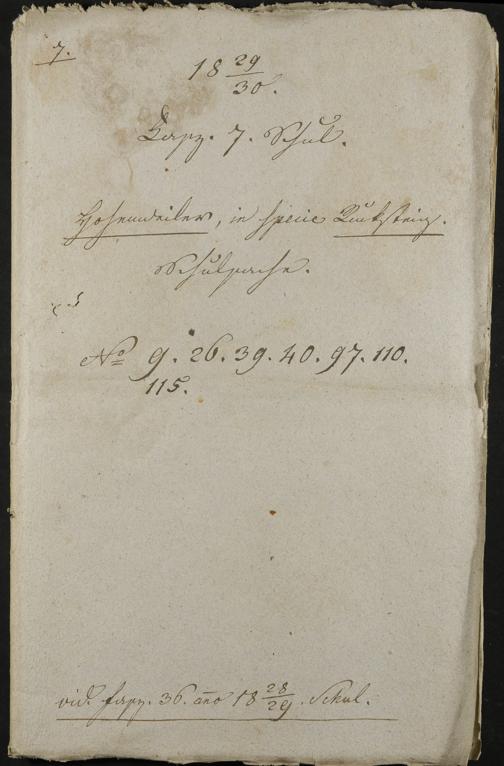 7.
18 29/30.
Fasz. 7. Schul.
Hohenweiler, in specie Rukstein.
Schulsache.
No 9. 26. 39. 40. 97. 110.
115.
vid. Fasz. 36. año 18 28/29. Schul.